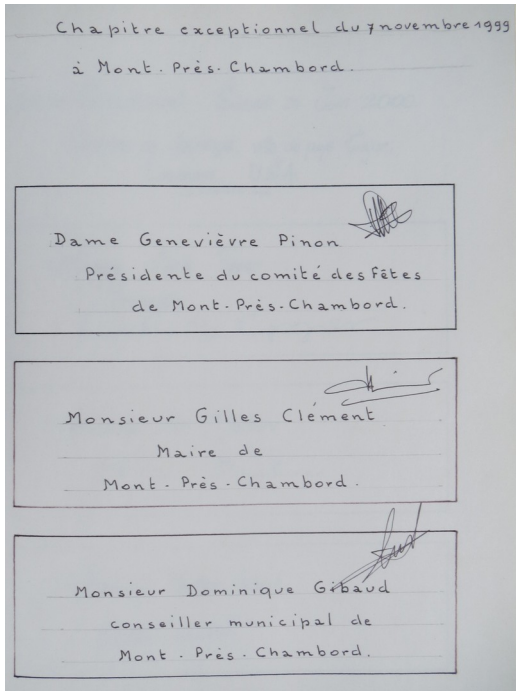 Chapitre exceptionnel du 7 novembre 1999
à Mont. Près. Chambord.
Dame Genevièvre Pinon
Présidente du comité des fêtes
de Mont. Près. Chambord.
Monsieur Gilles Clément
Maire de
Mont. Près. Chambord.
Monsieur Dominique Gibaud
conseiller municipal de
Mont. Près. Chambord.